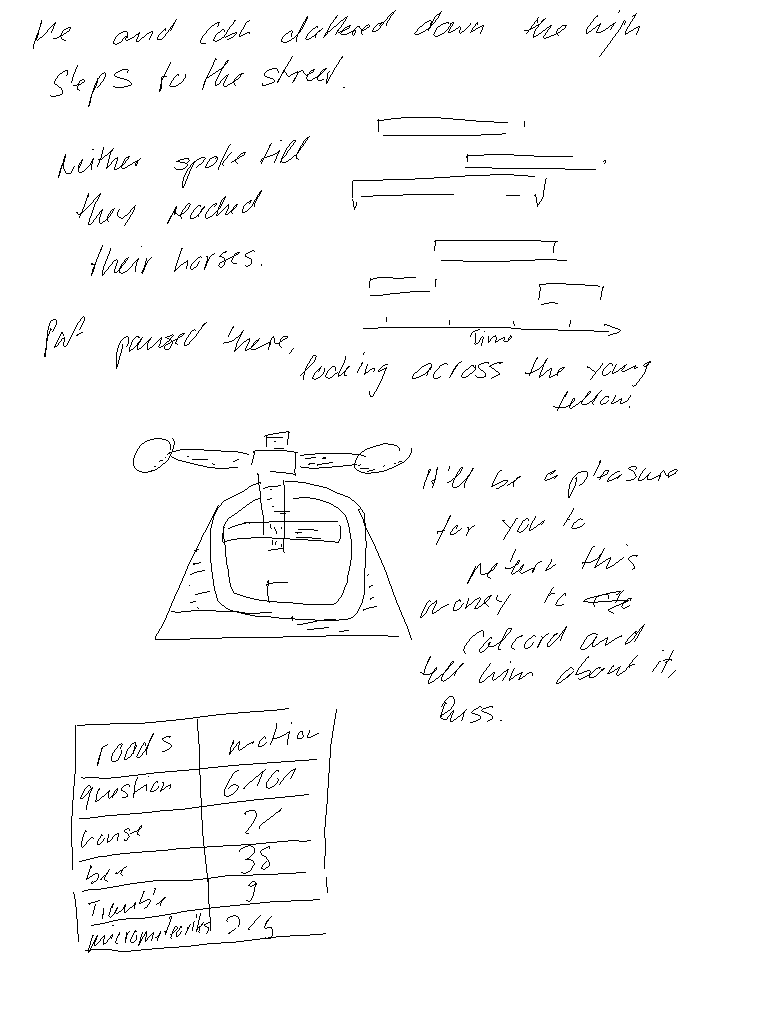 He and Cash clattered down the high
steps to the street.
Neither spoke till
they reached
their horses.
Time
Pat paused there,
looking across the young
fellow.
It'll be a pleasure
for you to
return this
money to
Calcord and
tell him about it,
Russ.
roads motion
question 6101
house
bee 38
Trouble 9
micrometeorites